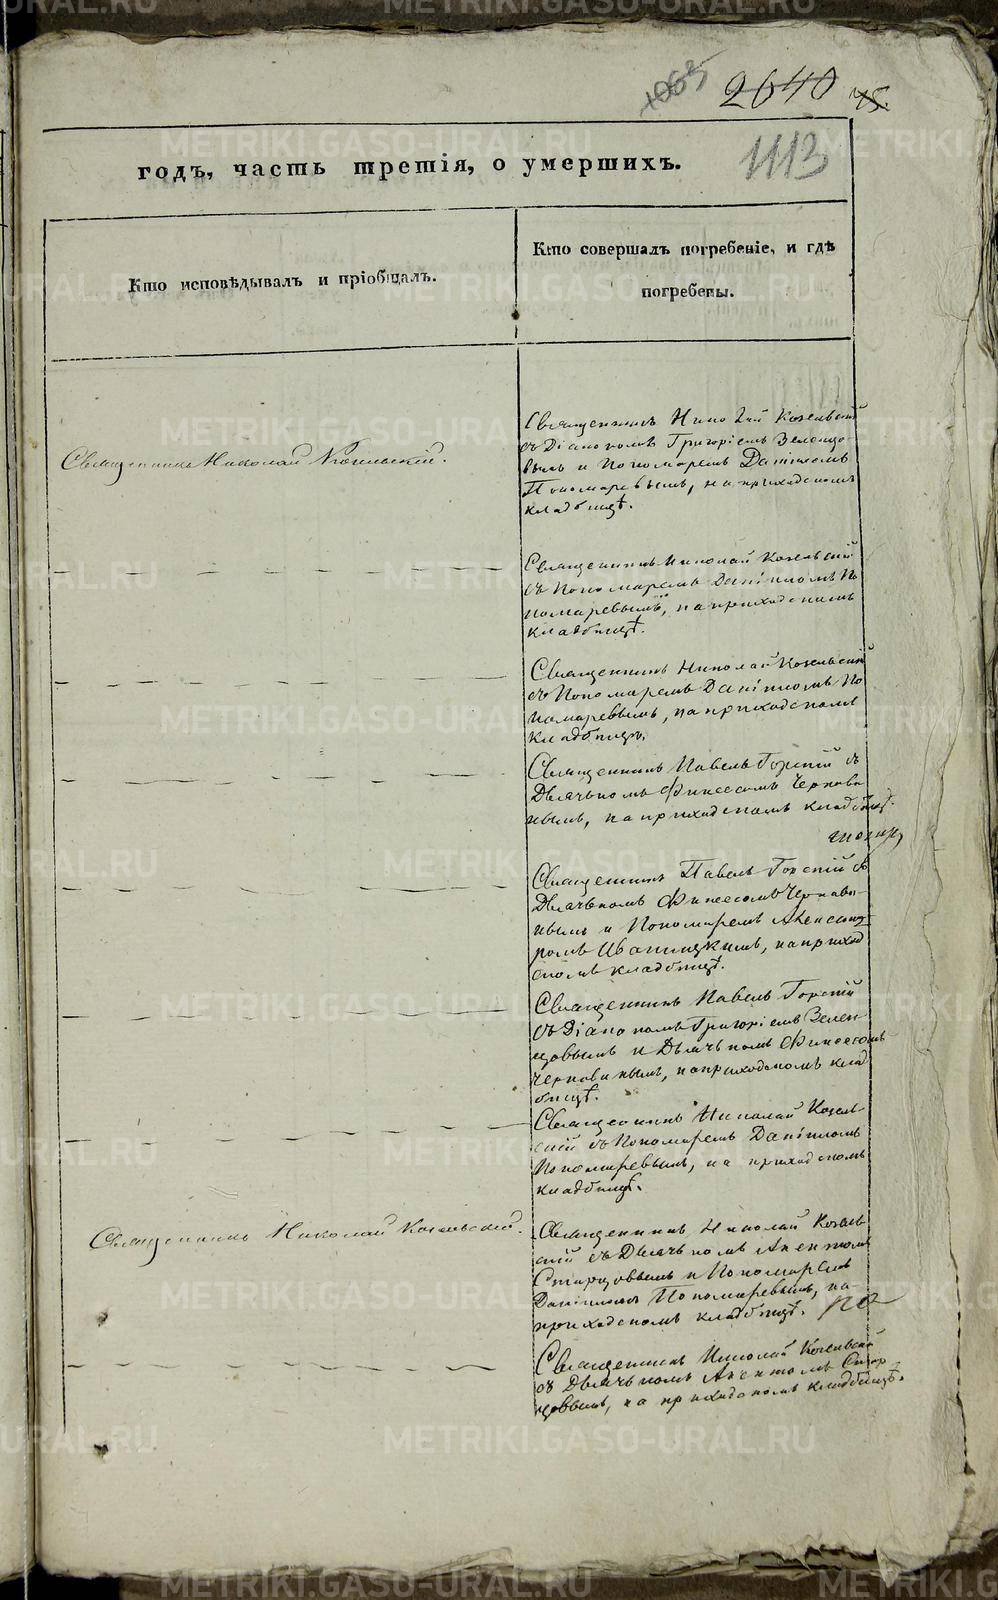 1065 2640 75.
1113
годъ, часть третія, о умершихъ.
Кто исповѣдывалъ и пріобщалъ.
Кто совершалъ погребеніе, и гдѣ
погребены.
Священникъ Николай Козельскій.
Священникъ Николай Козельскій
съ Діакономъ Григоріемъ Зеленцо-
вымъ и Пономаремъ Даніиломъ
Пономаревымъ, на приходскомъ
кладбищѣ.
Священникъ Николай Козельскій
съ Пономаремъ Даніиломъ По
номаревымъ, на приходскомъ
кладбищѣ.
Священникъ Николай Козельскій
съ Пономаремъ Даніиломъ По
номаревымъ, на приходскомъ
кладбищѣ.
Священникъ Павелъ Горскій съ
Дьячькомъ Финеесомъ Чернави
нымъ, на приходскомъ кладбищѣ.
Священникъ Павелъ Горскій съ
Дьячькомъ Финеесомъ Чернави-
нымъ и Пономаремъ Александ
ромъ Иваницкимъ, на приход
скомъ кладбищѣ.
Священникъ Павелъ Горскій
съ Діакономъ Григоріемъ Зелен-
цовымъ и Дьячькомъ Финеесомъ
Чернавинымъ, на приходскомъ клад
бищѣ.
Священникъ Николай Козель-
скій съ Пономаремъ Даніиломъ
Пономаревымъ, на приходскомъ
кладбищѣ.
Священникъ Николай Козельский.
Священникъ Николай Козель-
скій съ Дьячькомъ Акентомъ
Старцовымъ и Пономаремъ
Даніиломъ Пономаревымъ, на-
приходскомъ кладбищѣ. по
Священникъ Николай Козельскій
съ Дьячькомъ Акентомъ Стар-
цовымъ, на приходскомъ кладбищѣ.